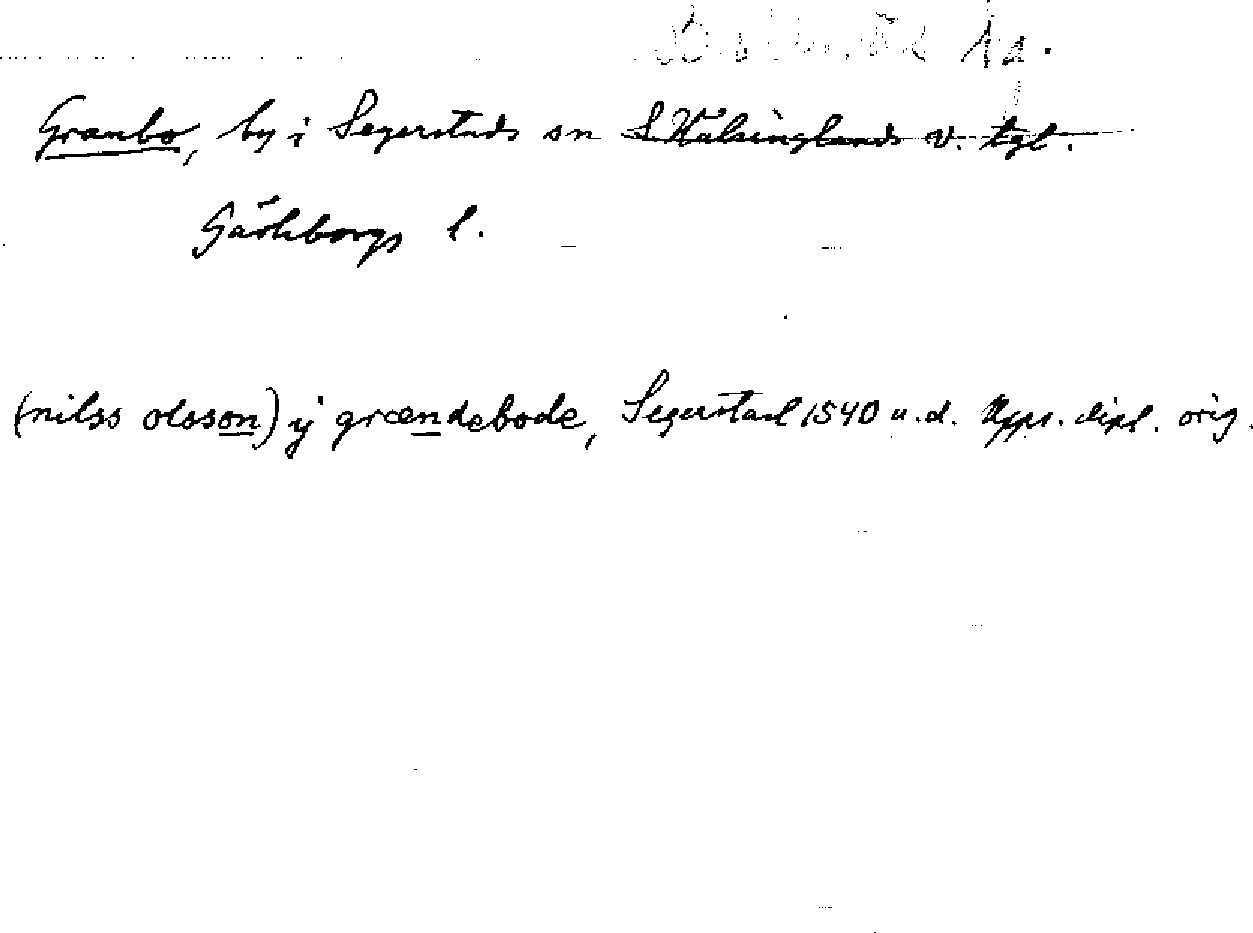 hg.
Grambo, by i Segerstads sn S. Hälsinglands v. tgl.
Gävleborgs l.
(nilss olsson) ij grændebode, Segerstad 1540 u.d. Upps. dipl. orig.